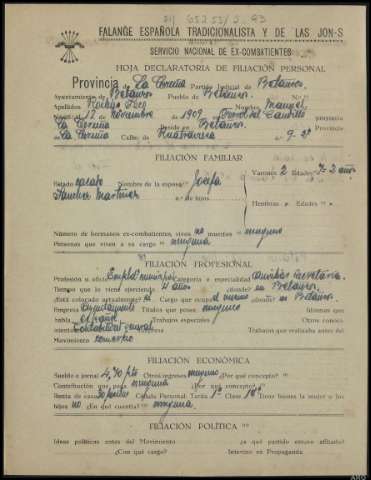 65253/2.93
FALANGE ESPAÑOLA TRADICIONALISTA Y DE LAS JON-S
SERVICIO NACIONAL DE EX-COMBATIENTES
HOJA DECLARATORIA DE FILIACIÓN PERSONAL
Provincia de La Coruña Partido Judicial de Betanzos.
Ayuntamiento de Betanzos Pueblo de Betanzos. N.º
Apellidos Nombre Manuel
Nacido el 17 de Noviembre de 1909 en Ferrol del Caudillo provincia
La Coruña Reside en Betanzos Provincia
de La Coruña Calle de n.º 9-2º
FILIACIÓN FAMILIAR
Estado casado Nombre de la esposa Josefa Varones 2 Edades 7-2 años
Sánchez Martínez n.º de hijos Hembras Edades
Número de hermanos ex-combatientes, vivos no muertos ninguno
Personas que viven a su cargo ninguna
FILIACIÓN PROFESIONAL
Profesión u oficio Empleado municipal categoría o especialidad auxiliar Secretaría.
Tiempo que lo viene ejerciendo 4 años ¿dónde? en Betanzos.
¿Está colocado actualmente? sí Cargo que ocupa el mismo ¿dónde? en Betanzos.
Empresa Ayuntamiento Títulos que posee ninguno Idiomas que
habla español ¿Trabajos especiales Otros conoci-
mientos Contabilidad general Trabajos que realizaba antes del
Movimiento
FILIACIÓN ECONÓMICA
Sueldo o jornal 4,70 pts Otros ingresos ninguno ¿Por qué concepto?
Contribución que paga ninguna ¿Por qué concepto?
Renta de casa 30 pesetas Cédula Personal Tarifa 1ª Clase Tiene bienes la mujer o los
hijos no ¿En qué cuantía? ninguna
FILIACIÓN POLÍTICA
Ideas políticas antes del Movimiento ¿a qué partido estuvo afiliado?
¿Con qué cargo? Intervino en Propaganda